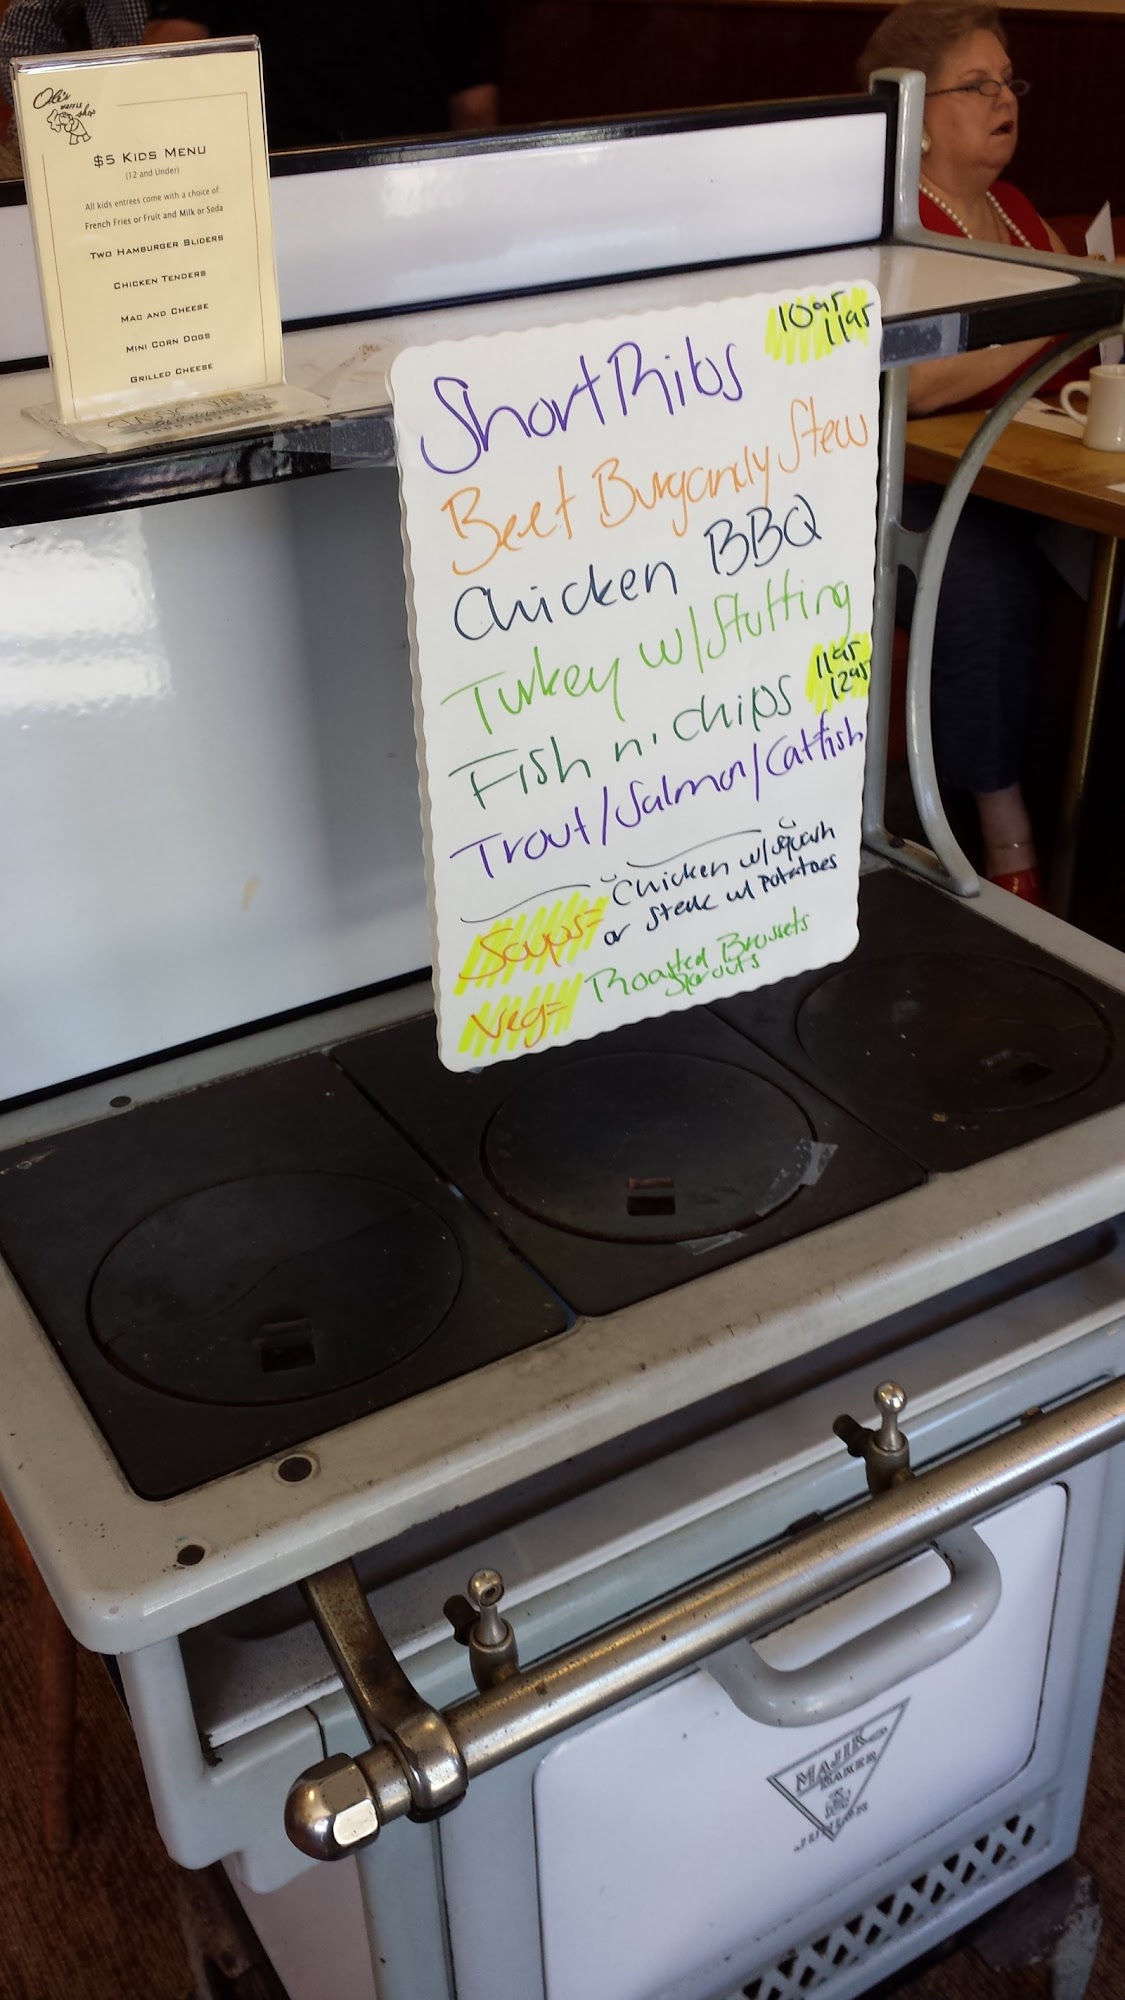 Ole's
WAFFLE
shop
$5 KIDS MENU
(12 and Under)
All kids entrees come with a choice of:
French Fries or Fruit and Milk or Soda
TWO HAMBURGER SLIDERS
CHICKEN TENDERS
MAC AND CHEESE
MINI CORN DOGS
GRILLED CHEESE
10 95
11 95
Short Ribs
Beef Burgandy Stew
Chicken BBQ
Turkey w/Stuffing
11 95
12 95
Fish n' chips
Trout/Salmon/Catfish
Soups= Chicken w/squash
or steak w/ Potatoes
Veg= Roasted Brussets
Sprouts
MAJIK
BAKER
JUNIOR